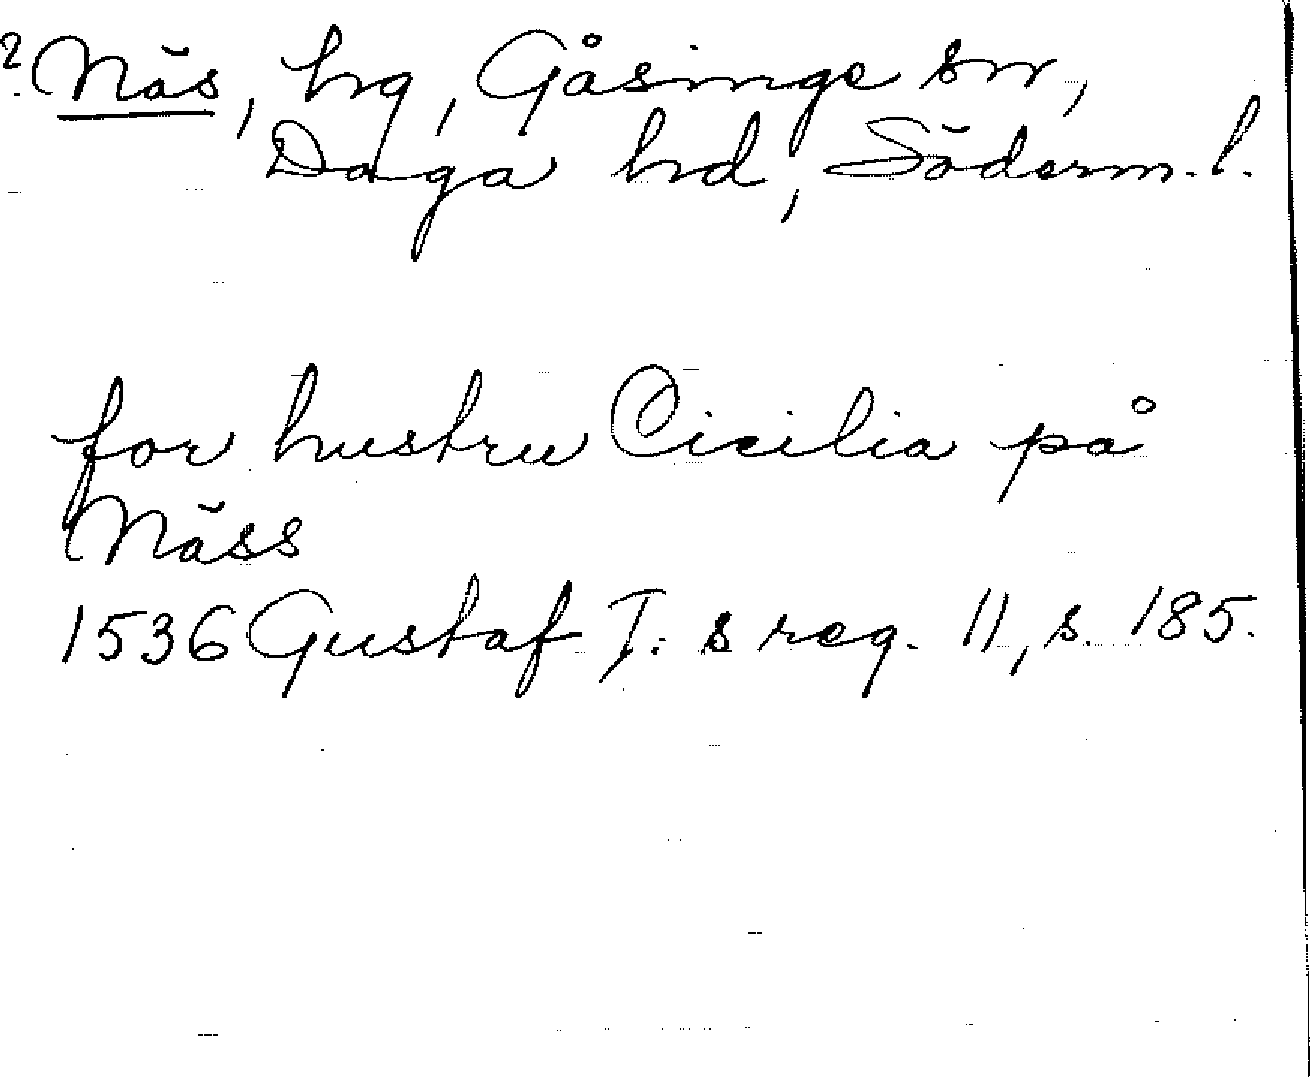 ? Näs, hg, Gåsinge sn,
Daga hd, Söderm. l.
for hustru Cicilia på
Näss
1536 Gustaf I:s reg. 11, s. 185.